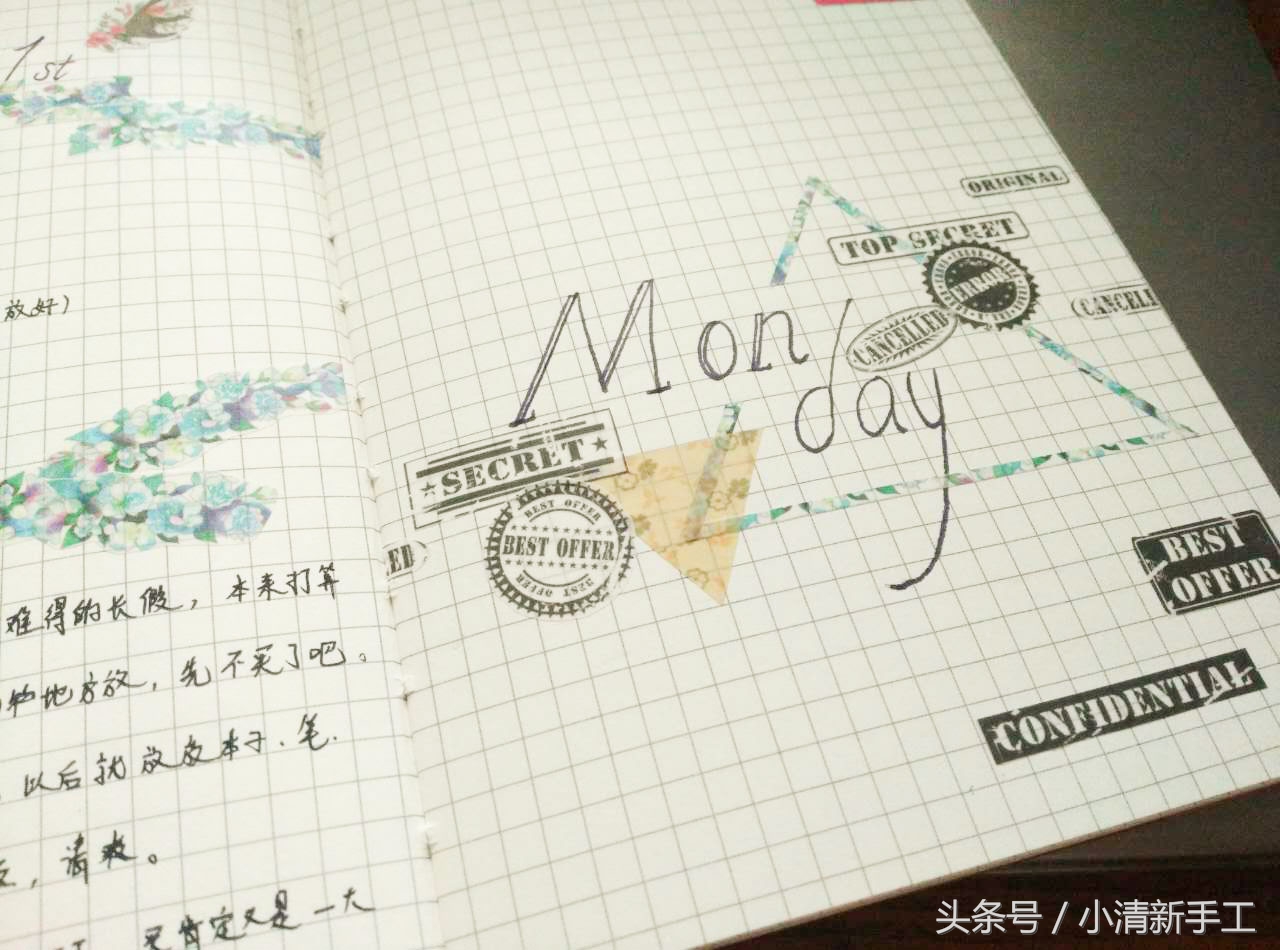 1st
放好)
难得的长假，本来打算
地方放，先不买了吧。
以后就放皮本子、笔、
，清爽。
肯定又是一大
ORIGINAL
TOP SECRET
CANCELLED
CANCELL
Mon
day
SECRET
BEST OFFER
BEST OFFER
BEST OFFER
ED
BEST
OFFER
CONFIDENTIAL
头条号 / 小清新手工